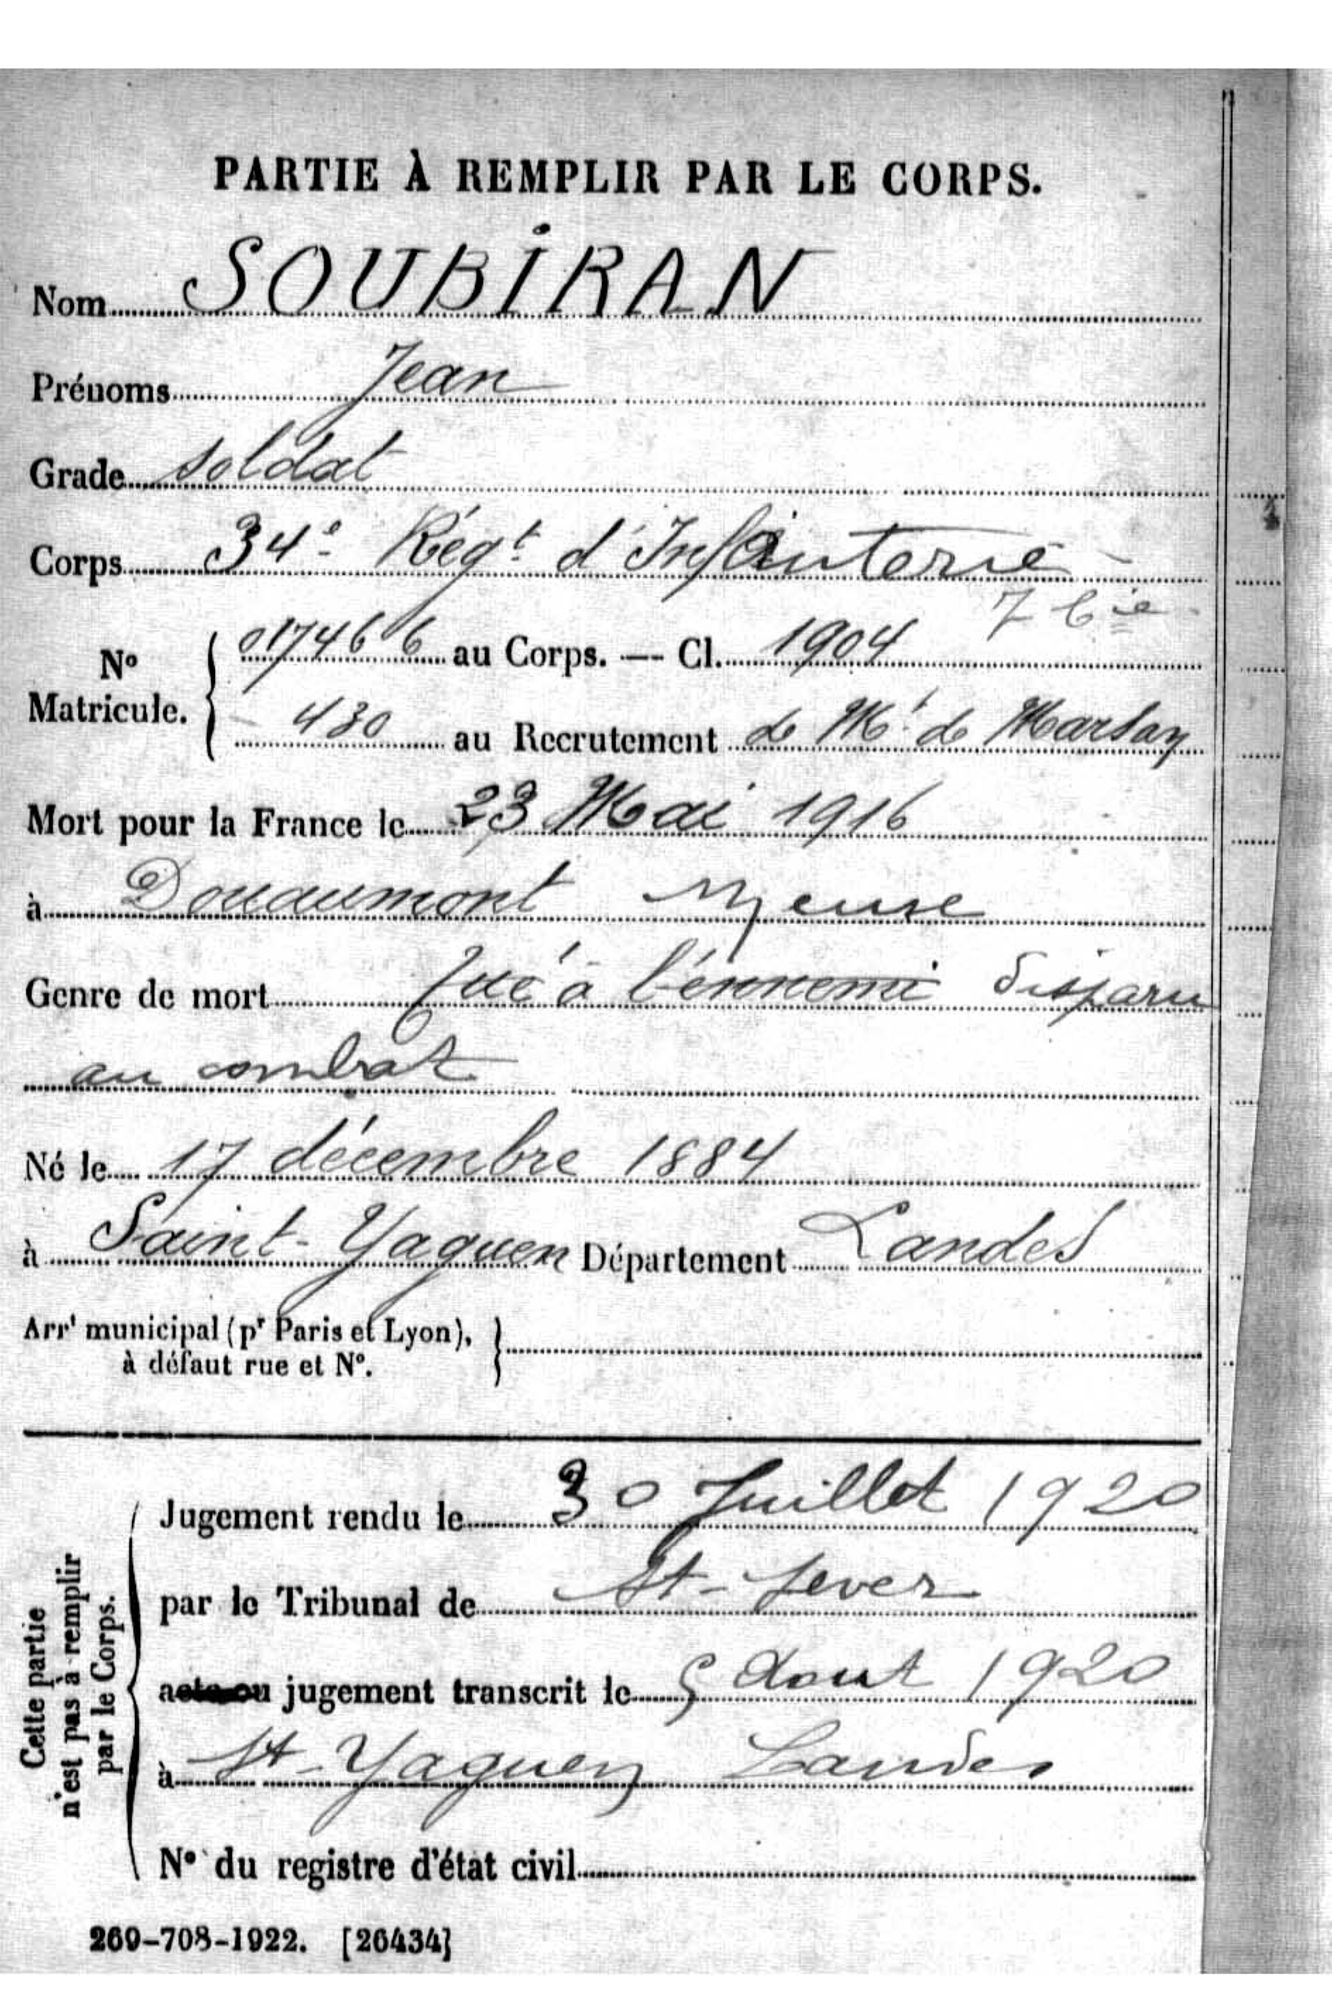 PARTIE À REMPLIR PAR LE CORPS.
Nom SOUBIRAN
Prénoms Jean
Grade soldat
Corps 34e Régt d'Infanterie
7 Cie
N° Matricule. 017466 au Corps. — Cl. 1904
430 au Recrutement de Mt de Marsan
Mort pour la France le 23 Mai 1916
à Douaumont Meuse
Genre de mort Tué à l'ennemi disparu
au combat
Né le 17 décembre 1884
à Saint-Yaguen Département Landes
Arrt municipal (pr Paris et Lyon),
à défaut rue et N°.
Cette partie
n'est pas à remplir
par le Corps.
Jugement rendu le 30 Juillet 1920
par le Tribunal de St-Sever
acte ou jugement transcrit le 5 Aout 1920
à St-Yaguen Landes
N° du registre d'état civil
269-708-1922. [26434]